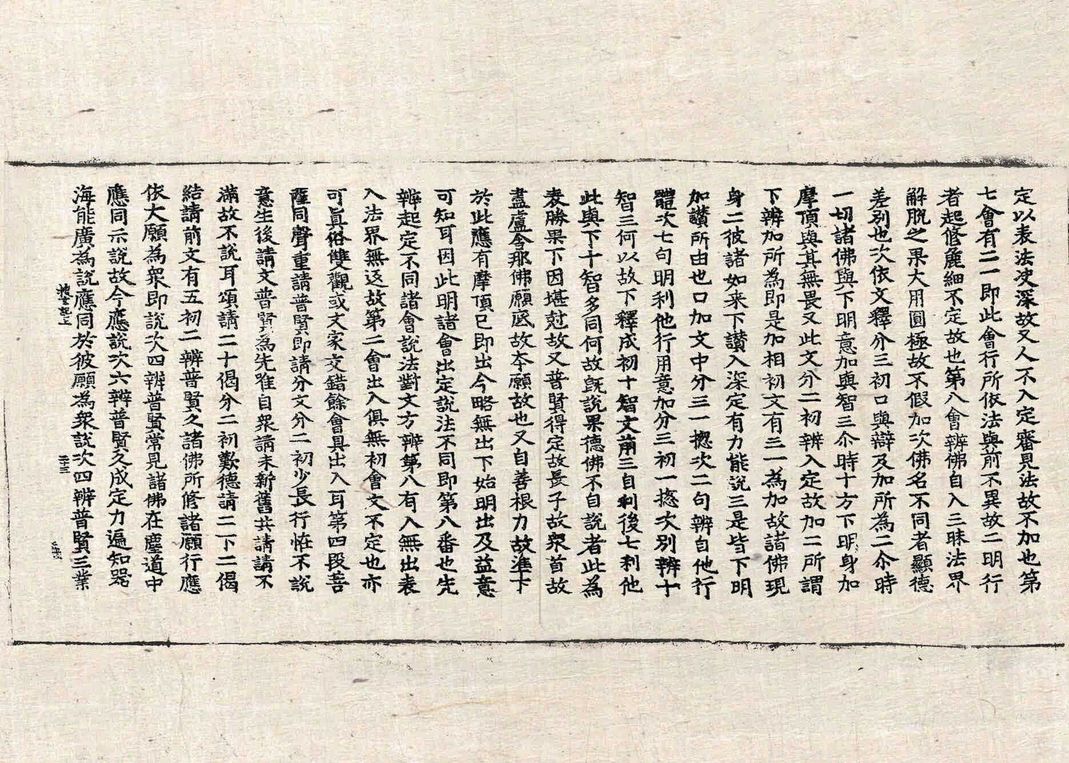 定以表法㳬深故又人不入定審見法故不加也第
七會有二一即此會行所依法與前不異故二明行
者起修麁細不定故也第八會辨佛自入三昧法界
解脫之果大用圓極故不假加次佛名不同者顯德
差別也次依文釋分三初口與辯及加所為二尒時
一切諸佛與下明意加與智三尒時十方下明身加
摩頂與其無畏又此文分二初辨入定故加二所謂
下辨加所為即是加相初文有三一為加故諸佛現
身二彼諸如来下讃入深定有力能說三是皆下明
加讃所由也口加文中分三一揔次二句辨自他行
體次七句明利他行用意加分三初一揔次別辨十
智三何以故下釋成初十智文前三自利後七利他
此與下十智多同何故旣說果德佛不自說者此為
表勝果下因堪尅故又普賢得定故長子故衆首故
盡盧舍那佛願底故本願故也又自善根力故准下
於此應有摩頂已即出今略無出下始明出及益意
可知耳因此明諸會出定說法不同即第八番也先
辨起定不同諸會說法對文方辨第八有入無出表
入法界無返故第二會出入俱無初會文不定也亦
可真俗雙觀或文家交錯餘會具出入耳第四段菩
薩同聲重請普賢即請分文分二初少長行恠不說
意生後請文普賢為先雖自衆請未新舊共請請不
滿故不說耳頌請二十偈分二初歎德請二下二偈
結請前文有五初二辨普賢久諸佛所修諸願行應
依大願為衆即說次四辨普賢常見諸佛在塵道中
應同示說故今應說次六辨普賢久成定力遍知器
海能廣為說應同於彼願為衆說次四辨普賢三業